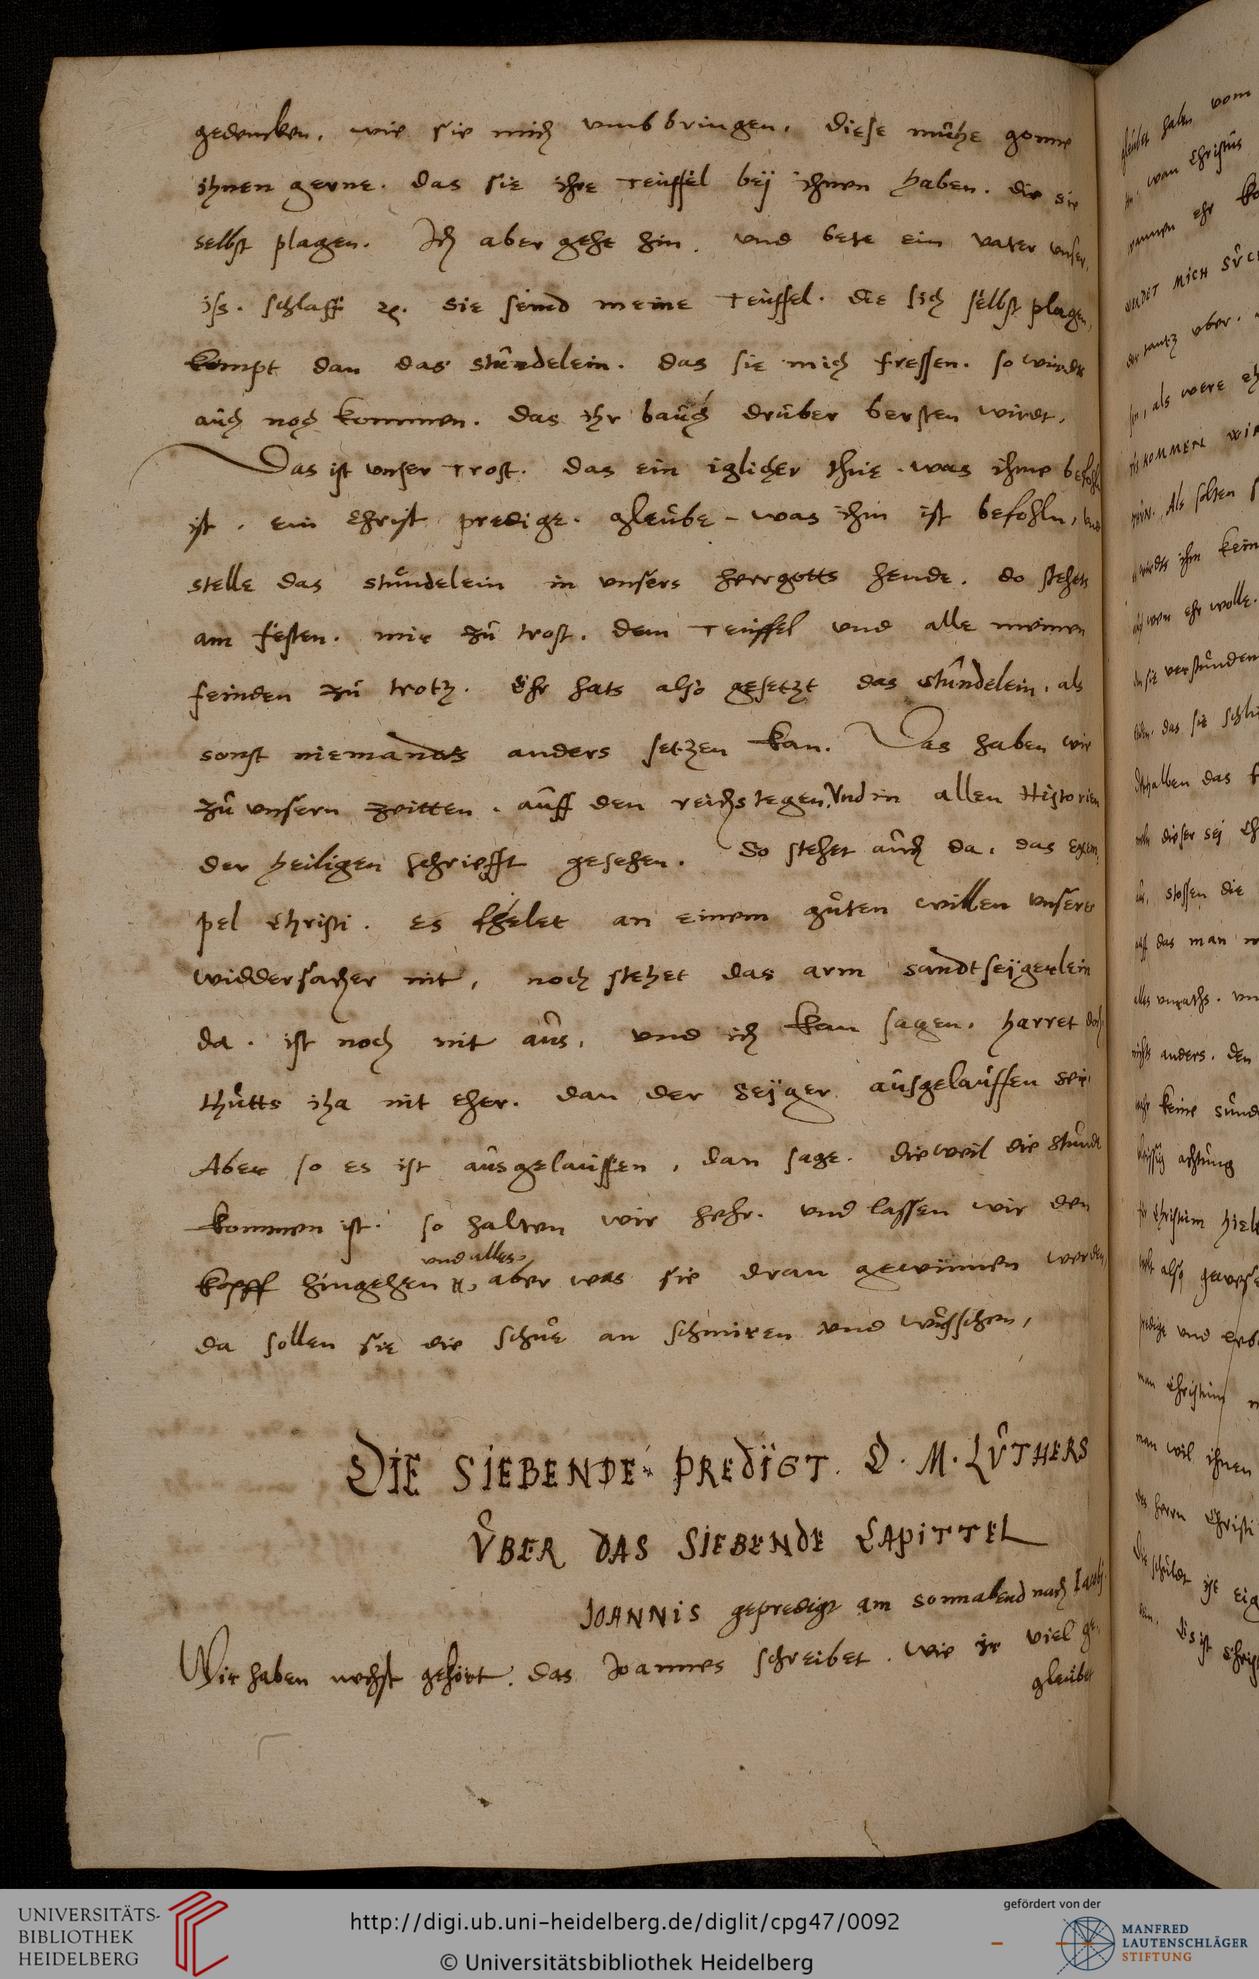 gedencken. wie sie mich umbbringen. diese muhe gonne
ihnen gerne. das sie ihre teuffel beÿ ihnen haben. die sie
selbst plagen. Ich aber gehe hin. und bete ein vater unser,
iss. schlaff ꝛc. sie seind meine teuffel. die sich selbst plagen,
kompt dan das stundelein. das sie mich fressen. so wirdts
auch noch kommen. das ihr bauch druber bersten wirdt.
Das ist unser trost. das ein iglicher thue. was ihme befohln
ist. ein Christ predige. gleube - was ihm ist befohln, und
stelle das stundelein in unsers herrgotts hende. do stehets
am festen. mir zu trost. dem teuffel und alle meinen
feinden zu trotz. Ehr hats also gesetzt das stundelein. als
sonst niemandts anders setzen kan. Das haben wir
zu unsern zeitten. auff den reichstegen, Und in allen Historien
der heiligen schriefft gesehen. do stehet auch da. das exem-
pel Christi. es fhelet an einem guten willen unserer
widdersacher nit, noch stehet das arm sandtseÿgerlein
da. ist noch nit aus. und ich kan sagen. harret doch
thutts iha nit eher. dan der seÿger ausgelauffen sei
Aber so es ist ausgelauffen, dan sage. dieweil die stundt
kommen ist. so halten wir hehr. und lassen wir den
und alles
kopff hingehen, aber was sie dran gewinnen werden,
da sollen sie die schue an schmiren und wisschen,
DIE SIEBENDE PREDIGT. D. M. LUTHERS
UBER DAS SIEBENDE CAPITTEL
JOANNIS gepredigt am sonnabend nach Jacobj.
Wir haben nehst gehört. das Joannes schreibet. wie ir viel ge-
gleubet
gleubet haben vom
wan Christus
ehr
ENDET MICH SUCH
der tantz uber.
sein, als were
HIKOMMEN WIR
HEIN. Als solten
wirdts ihn kein
wen ehr wolle.
sie verstunden
das sie
Deshalben das
dieser sej
stossen die
auff das man
alles unraths.
nichts anders. den
mehr keine sund
achtung
Christum hielt
also
predige und
man Christum
man wil ihnen
des herrn Christi
Die schuldt ist
Dis ist
UNIVERSITÄTS-
BIBLIOTHEK
HEIDELBERG
http://digi.ub.uni-heidelberg.de/diglit/cpg47/0092
© Universitätsbibliothek Heidelberg
gefördert von der
MANFRED
LAUTENSCHLÄGER
STIFTUNG